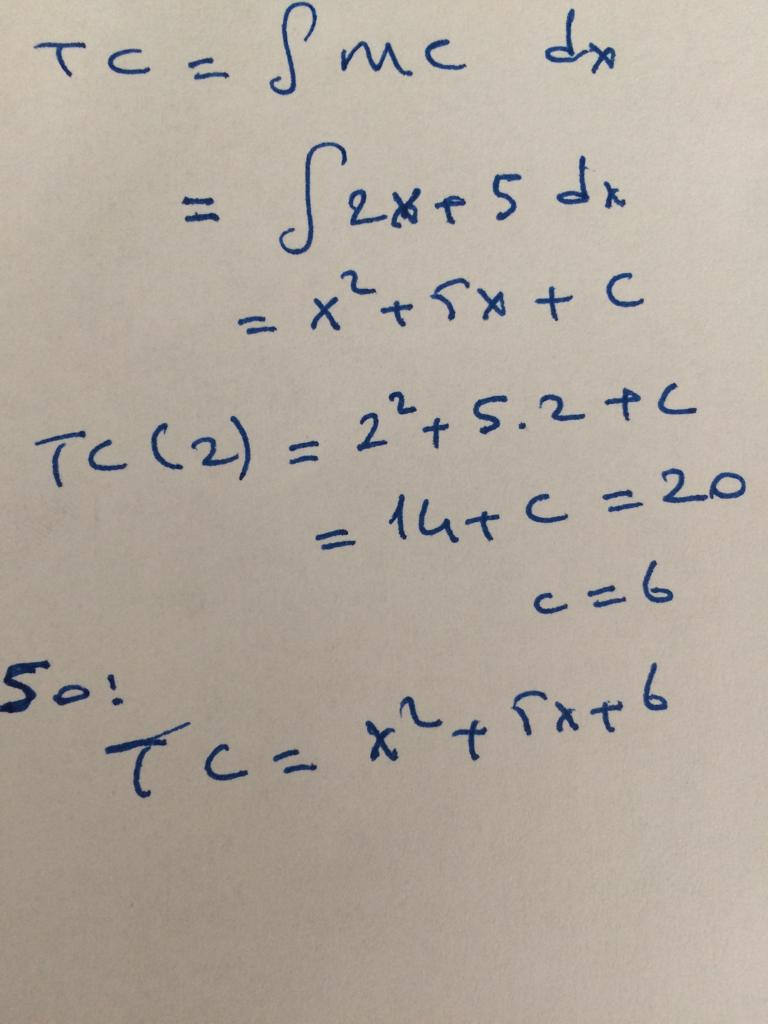 TC = ∫ mc dx
= ∫ 2x + 5 dx
= x² + 5x + C
TC (2) = 2² + 5.2 + C
= 14 + C = 20
C = 6
So:
TC = x² + 5x + 6